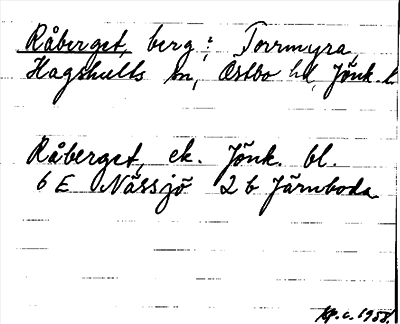 Råberget, berg i Torrmyra,
Hagshults sn, Östbo hd, Jönk. l.
Råberget, ek. Jönk. bl.
6 E Nässjö 2 b Järnboda
1958.